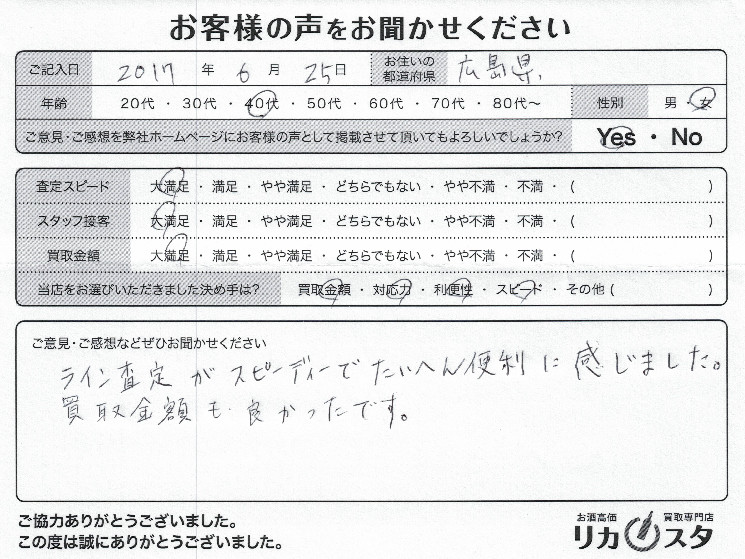 お客様の声をお聞かせください
ご記入日 2017 年 6 月 25日 お住いの都道府県 広島県.
年齢 20代 ・ 30代 ・ 40代 ・ 50代 ・ 60代 ・ 70代 ・ 80代〜 性別 男 ・ 女
ご意見・ご感想を弊社ホームページにお客様の声として掲載させて頂いてもよろしいでしょうか? Yes ・ No
査定スピード 大満足 ・ 満足 ・ やや満足 ・ どちらでもない ・ やや不満 ・ 不満 ・ ( )
スタッフ接客 大満足 ・ 満足 ・ やや満足 ・ どちらでもない ・ やや不満 ・ 不満 ・ ( )
買取金額 大満足 ・ 満足 ・ やや満足 ・ どちらでもない ・ やや不満 ・ 不満 ・ ( )
当店をお選びいただきました決め手は? 買取金額 ・ 対応力 ・ 利便性 ・ スピード ・ その他 ( )
ご意見・ご感想などぜひお聞かせください
ライン査定がスピーディーでたいへん便利に感じました。
買取金額も良かったです。
ご協力ありがとうございました。
この度は誠にありがとうございました。
お酒高価 買取専門店
リカスタ